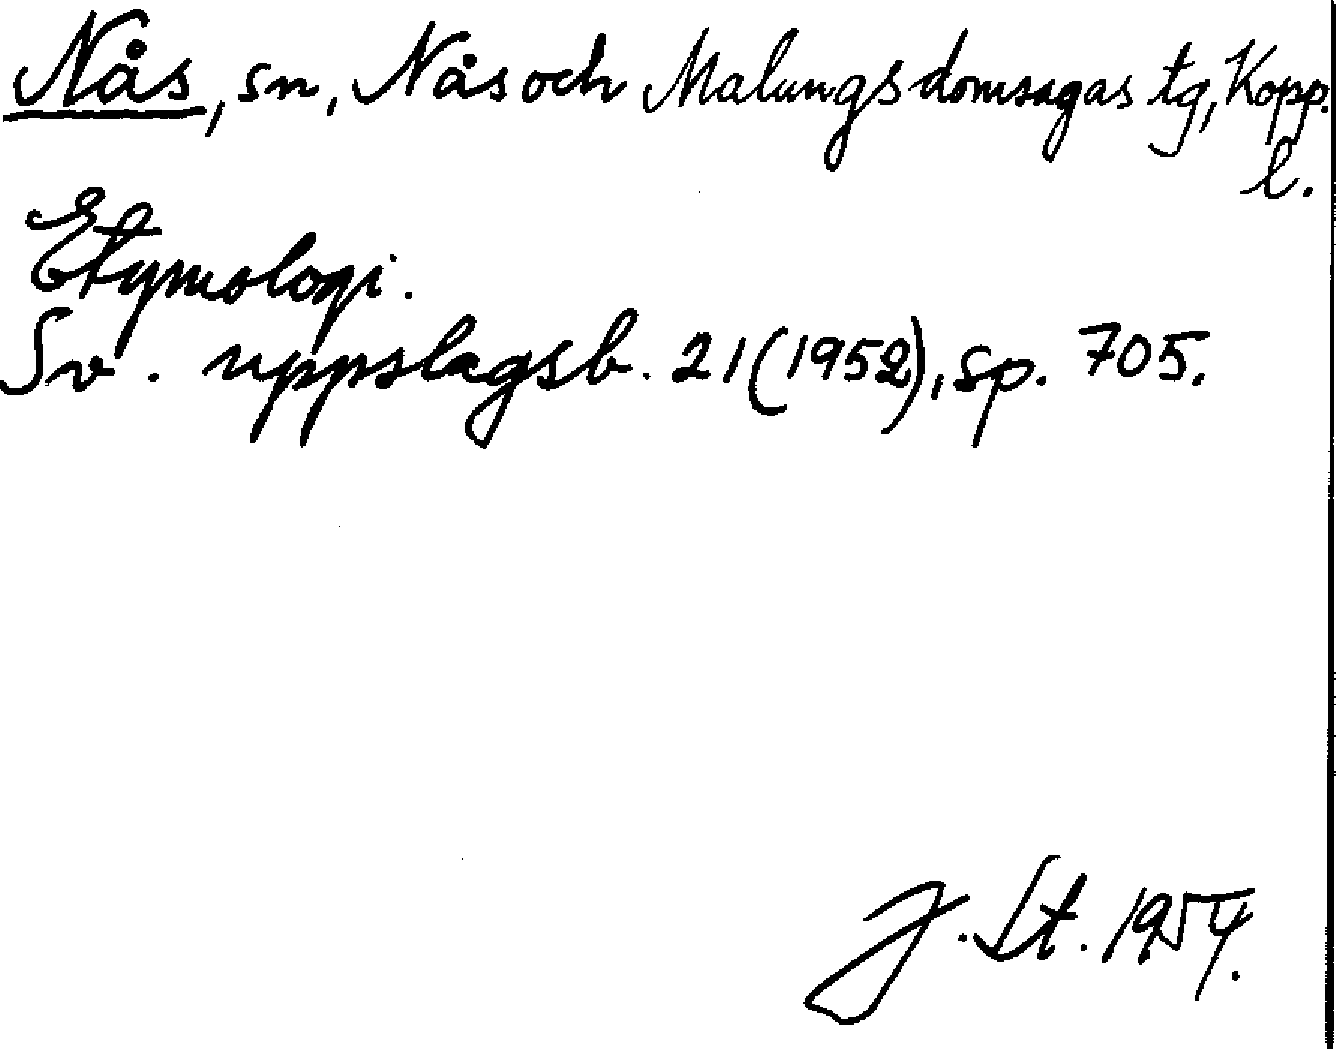 Nås, sn, Nås och Malungs domsagas tg, Kopp.
l.
Etymologi.
Sv. uppslagsb. 21 (1952), sp. 705.
J. St. 1954.